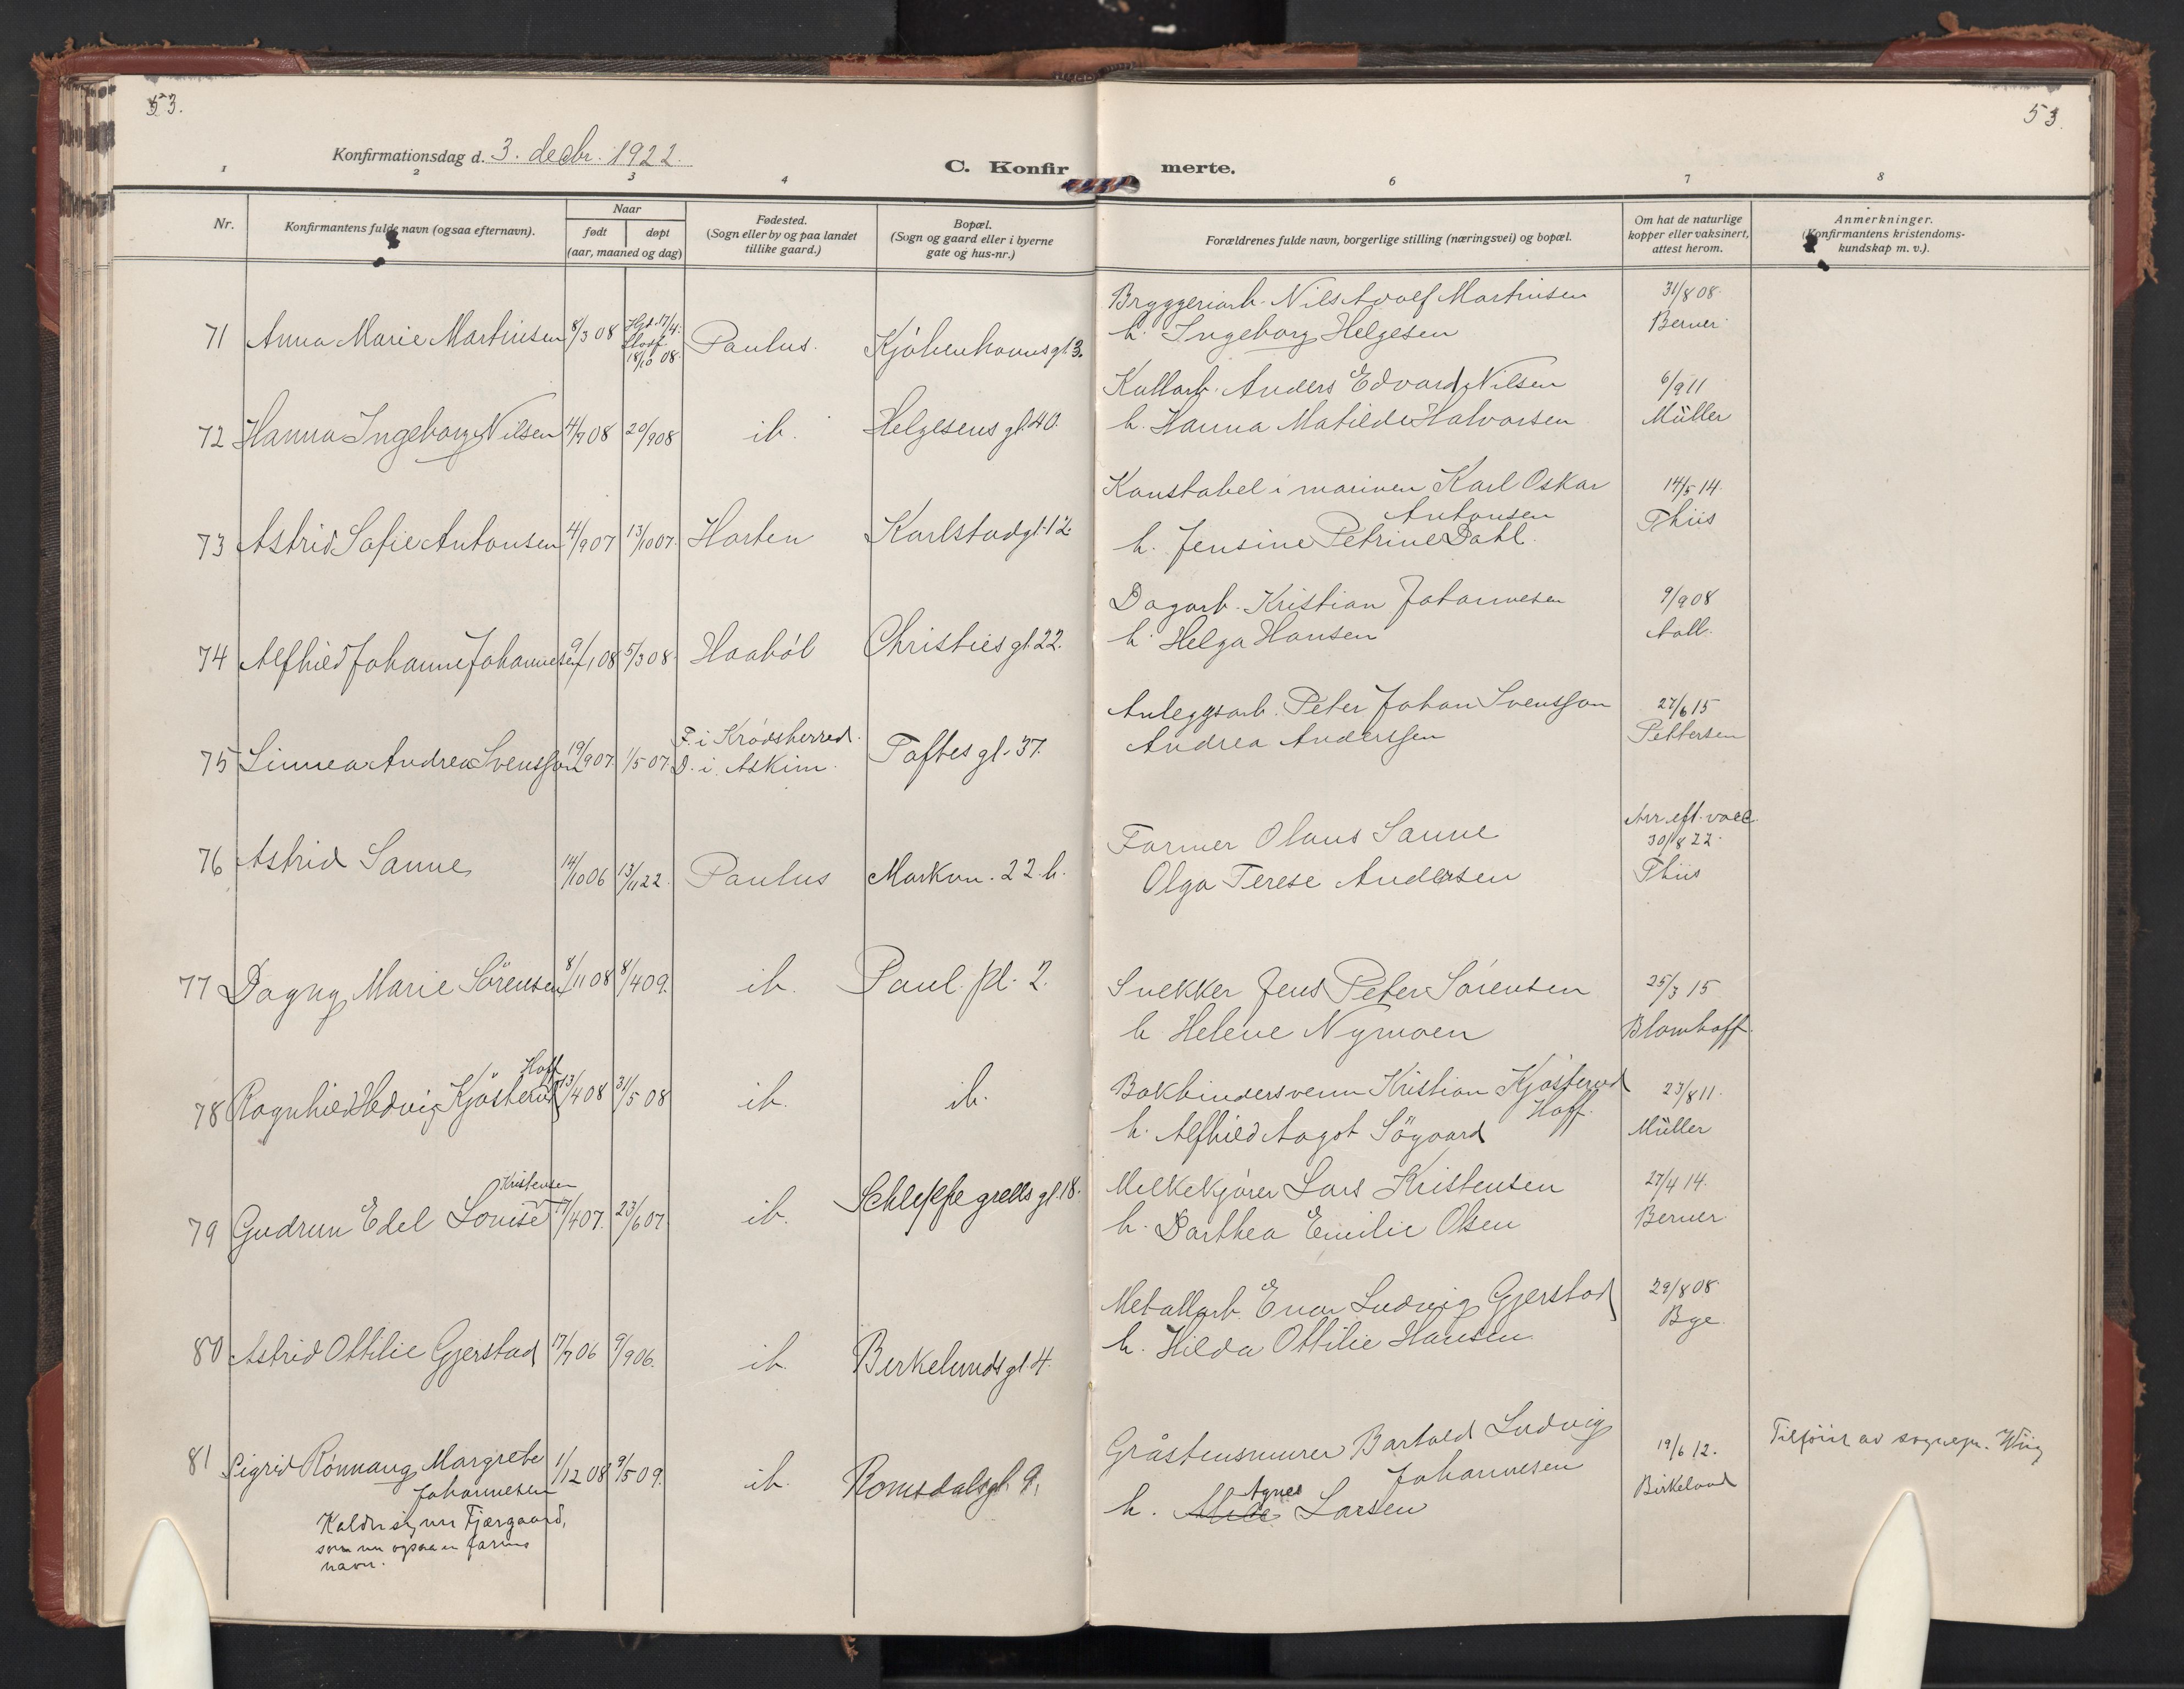 53.
53.
Konfirmationsdag d. 3. decbr. 1922.
C. Konfirmerte.
1 2 3 4 6 7 8
Nr.
Konfirmantens fulde navn (ogsaa efternavn).
Naar
født døpt
(aar, maaned og dag)
Fødested.
(Sogn eller by og paa landet
tillike gaard.)
Bopæl.
(Sogn og gaard eller i byerne
gate og hus-nr.)
Forældrenes fulde navn, borgerlige stilling (næringsvei) og bopæl.
Om hat de naturlige
kopper eller vaksinert,
attest herom.
Anmerkninger.
(Konfirmantens kristendoms-
kundskap m. v.).
71 Anna Marie Martinsen 8/3 08 Hjd. 17/4. 18/10 08. Paulus. Kjøbenhavnsgt. 3.
Bryggeriarb. Nils Adolf Martinsen
h. Ingeborg Helgesen
31/8 08.
Berner
72 Hanna Ingeborg Nilsen 4/9 08 20/9 08 ib. Helgesens gt. 40.
Kullarb. Anders Edvard Nilsen
h. Hanna Matilde Halvorsen
6/9 11
Müller
73 Astrid Sofie Antonsen 4/9 07 13/10 07. Horten Karlstadgt. 12
Konstabel i marinen Karl Oskar
Antonsen
h. Jensine Petrine Dahl.
14/5 14.
Thiis
74 Alfhild Johanne Johannesen 9/1 08 5/3 08. Haabøl Christies gt. 22.
Dagarb. Kristian Johannesen
h. Helga Hansen
9/9 08
Aall.
75 Linnea Andrea Svensson 19/9 07. 1/5 07. F. i Krødsherred.
D. i Askim. Toftes gt. 37.
Anleggsarb. Peter Johan Svensson
Andrea Anderssen
27/6 15
Pettersen
76 Astrid Sanne 14/10 06 13/11 22. Paulus Markvn. 22. b.
Farmer Olaus Sanne
Olga Terese Andersen
Arr. eft. vacc.
30/8 22.
Thiis
77 Dagny Marie Sörensen 8/11 08 8/4 09. ib. Paul. pl. 2.
Snekker Jens Peter Sörensen
h. Helene Nymoen
25/3 15
Blomhoff.
78 Ragnhild Hedvig Kjösterud Hoff 13/4 08 31/5 08 ib. ib.
Bokbindersvenn Kristian Kjösterud
Hoff.
h. Alfhild Aagot Sögaard
23/8 11.
Müller
79 Gudrun Edel Louise Kristensen 17/4 07. 23/6 07 ib. Schleppegrells gt. 18.
Melkekjører Lars Kristensen
h. Dorthea Emilie Olsen
27/4 14.
Berner
80 Astrid Ottilie Gjerstad 17/7 06 9/9 06. ib. Birkelunds gt 4.
Metallarb. Enar Ludvig Gjerstad
h. Hilda Ottilie Hansen
29/8 08.
Bge.
81 Sigrid Rönnaug Margrete
Johannesen 1/12 08 9/5 09. ib. Romsdalsgt. 9.
Kalder sig nu Fjærgaard,
som nu ogsaa er farens
navn.
Gråstensmurer Bartold Ludvig
Johannesen
h. Agnes Larsen
19/6 12.
Birkeland
Tilføiet av sognepr. Wiig